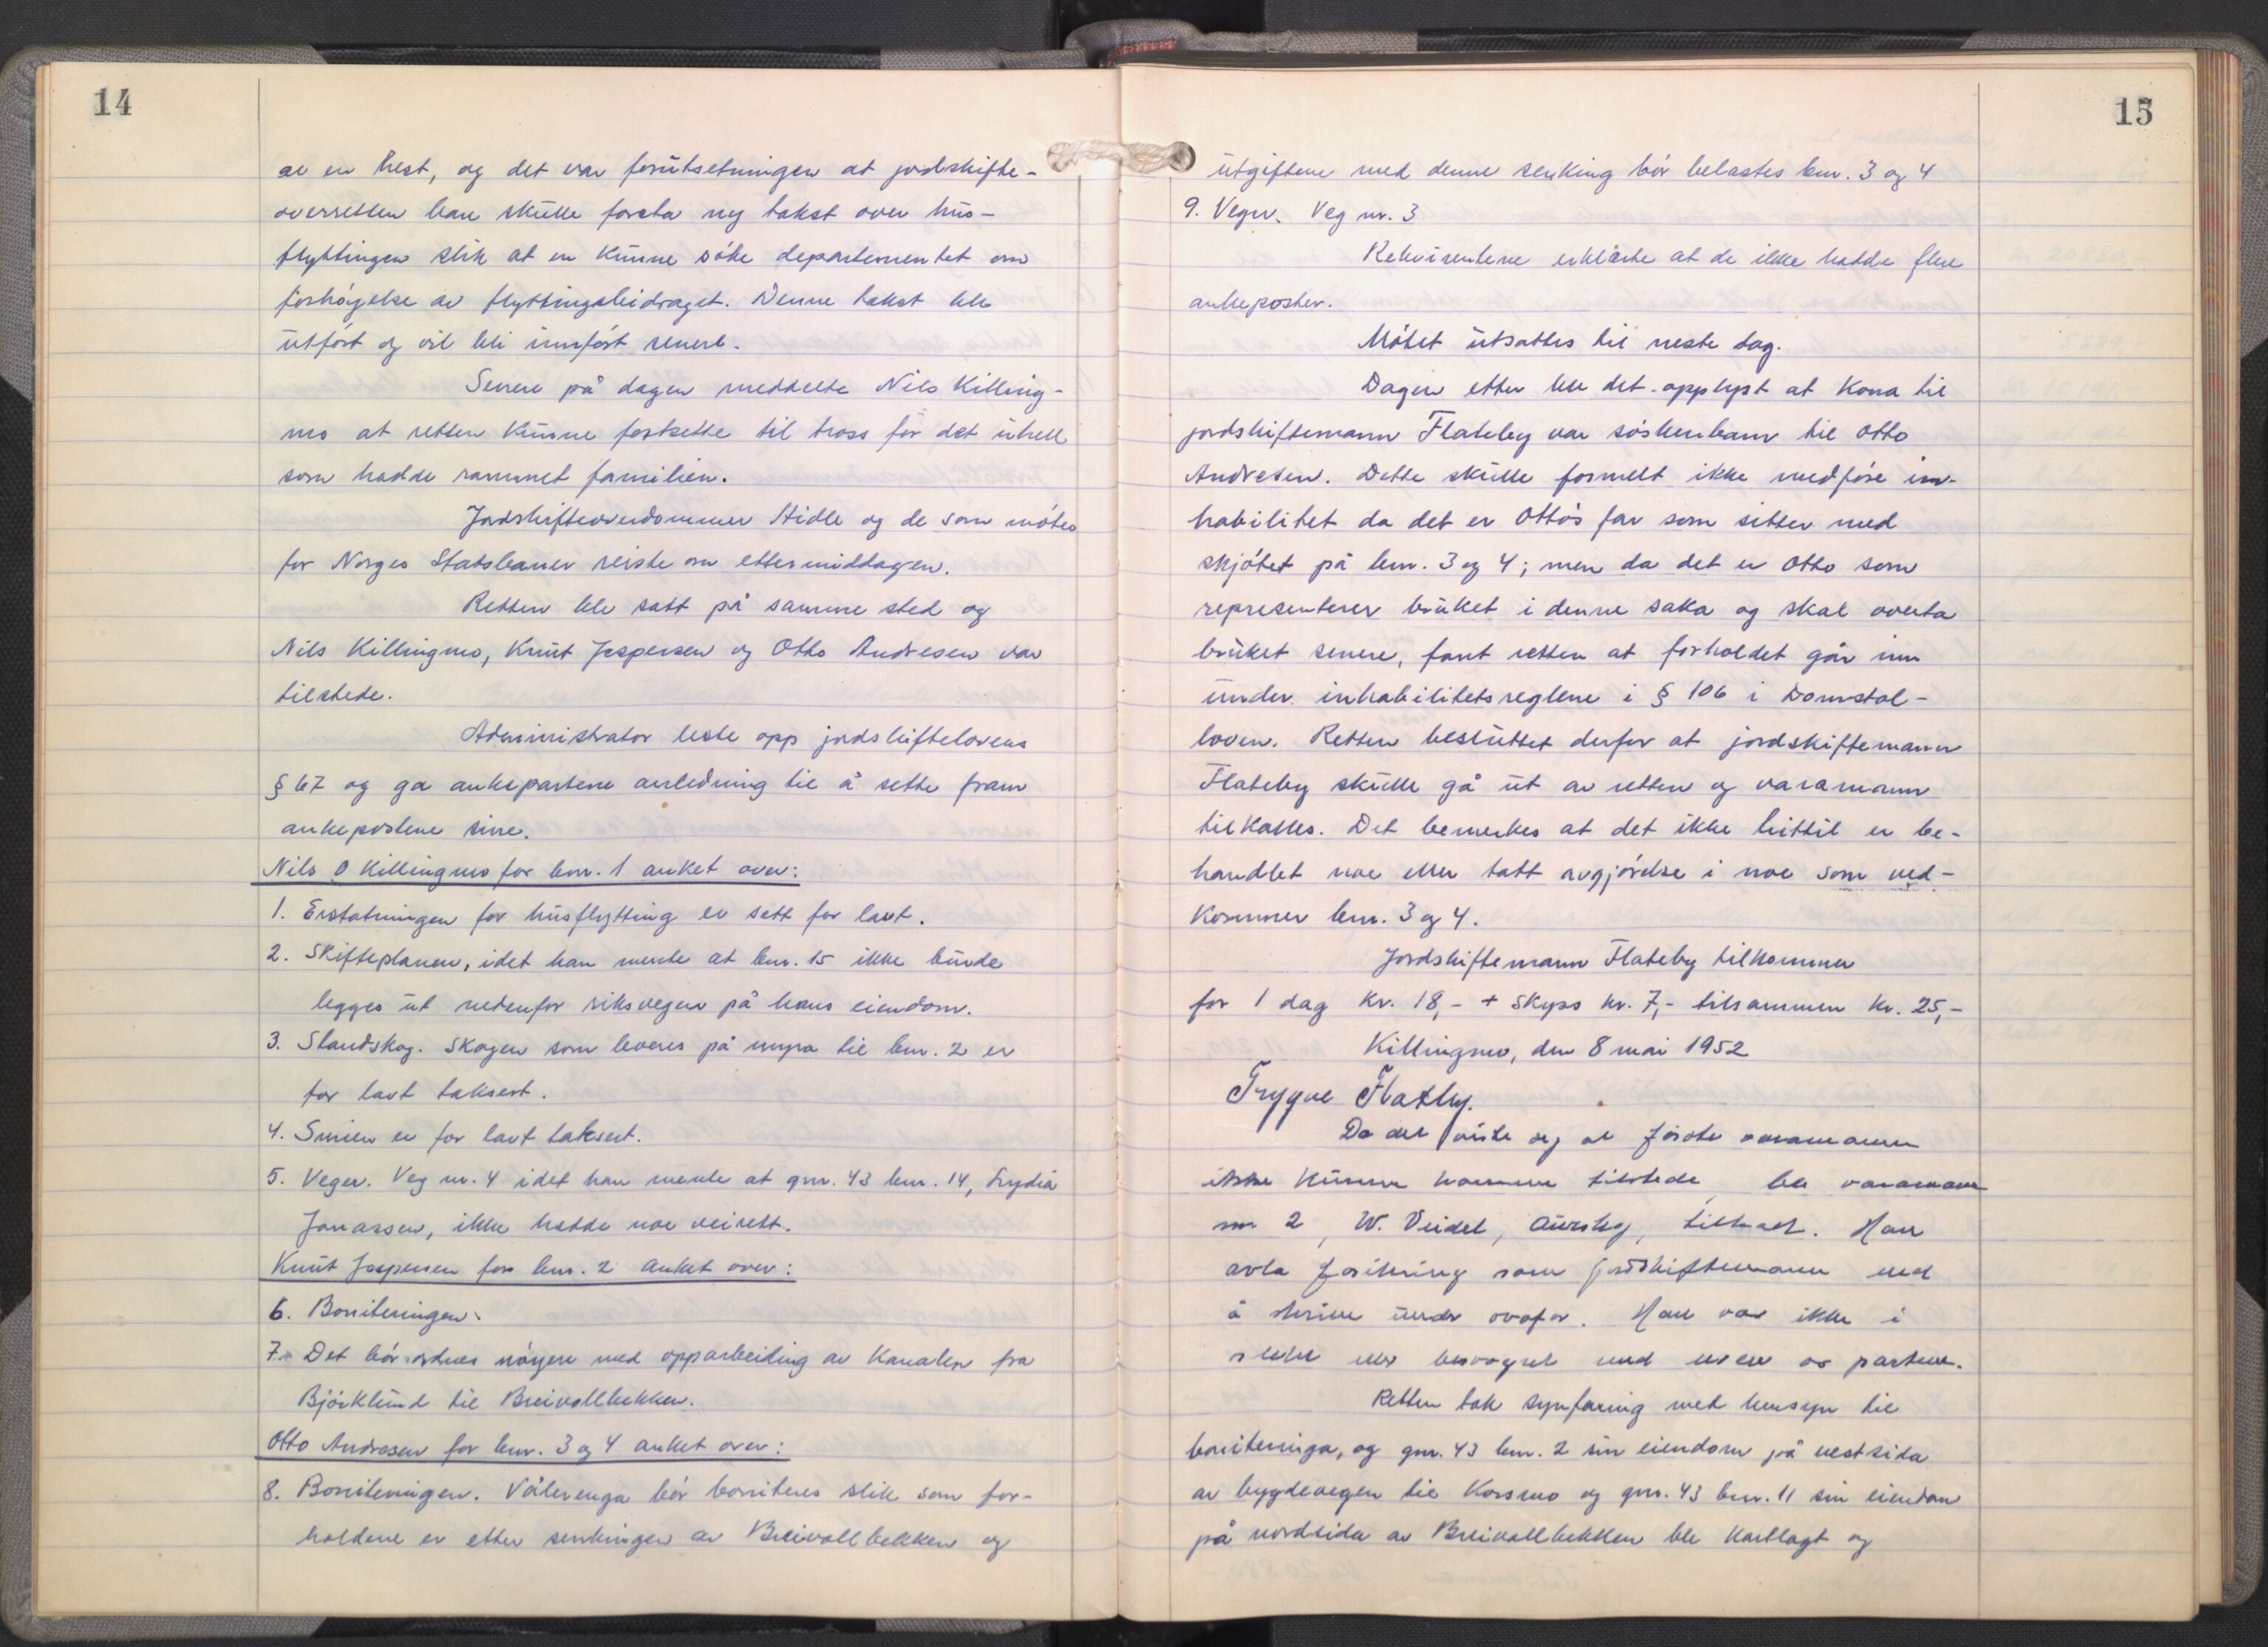 14
av en hest, og det var forutsetningen at jordskifte-
overretten bare skulle foreta ny takst over hus-
flyttingen slik at en kunne söke departementet om
forhöyelse av flyttingsbidraget. Denne takst ble
utfört og vil bli innfört senere.
Senere på dagen meddelte Nils Killing-
mo at retten kunne fortsette til tross for det uhell
som hadde rammet familien.
Jordskifteoverdommer Hidle og de som möter
for Norges Statsbaner reiste om ettermiddagen.
Retten ble satt på samme sted og
Nils Killingmo, Knut Jespersen og Otto Andresen var
tilstede.
Administrator leste opp jordskiftelovens
§ 67 og ga ankepartene anledning til å sette fram
ankepostene sine.
Nils O Killingmo for bnr. 1 anket over:
1. Erstatningen for husflytting er satt for lavt.
2. Skifteplanen, idet han mente at bnr. 15 ikke burde
legges ut nedenfor riksvegen på hans eiendom.
3. Standskog. Skogen som leveres på myra til bnr. 2 er
for lavt taksert.
4. Smien er for lavt taksert.
5. Veger. Veg nr. 4 idet han mente at gnr. 43 bnr. 14, Lydia
Jonassen, ikke hadde noe veirett.
Knut Jespersen for bnr. 2 anket over:
6. Boniteringen.
7. Det bör ordnes nöyere med opparbeiding av Kanalen fra
Björklund til Breivollbekken.
Otto Andresen for bnr. 3 og 4 anket over:
8. Boniteringen. Vålerenga bör boniteres slik som for-
holdene er etter senkningen av Breivollbekken og
15
utgiftene med denne senking bör belastes bnr. 3 og 4
9. Veger. Veg nr. 3
Rekvirentene erklærte at de ikke hadde flere
ankeposter.
Mötet utsattes til neste dag.
Dagen etter ble det opplyst at Kona til
jordskiftemann Flateby var söskenbarn til Otto
Andresen. Dette skulle formelt ikke medföre in-
habilitet da det er Otto's far som sitter med
skjötet på bnr. 3 og 4; men da det er Otto som
representerer bruket i denne saka og skal overta
bruket senere, fant retten at forholdet går inn
under inhabilitetsreglene i § 106 i Domstol-
loven. Retten besluttet derfor at jordskiftemann
Flateby skulle gå ut av retten og varamann
tilkalles. Det bemerkes at det ikke hittil er be-
handlet noe eller tatt avgjörelse i noe som ved-
kommer bnr. 3 og 4.
Jordskiftemann Flateby tilkommer
for 1 dag Kr. 18,- + Skyss kr. 7,- tilsammen Kr. 25,-
Killingmo, den 8 mai 1952
Trygve Flateby.
Da det viste seg at förste varamann
ikke kunne komme tilstede, ble varamann
nr 2, W. Veidel, Aurskog, tilkalt. Han
avla forsikring som jordskiftemann ved
å skrive under ovafor. Han var ikke i
slekt eller besvogret med noen av partene.
Retten tok synfaring med hensyn til
boniteringa, og gnr. 43 bnr. 2 sin eiendom på vestsida
av bygdevegen til Korsmo og gnr. 43 bnr. 11 sin eiendom
på nordsida av Breivollbekken ble kartlagt og